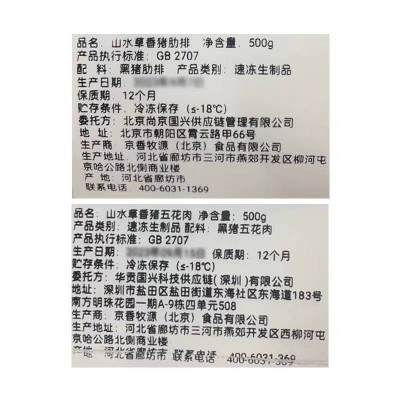 品名：山水草香猪肋排 净含量：500g
产品执行标准：GB 2707
配 料：黑猪肋排 产品类别：速冻生制品
生产日期：
保质期：12个月
贮存条件：冷冻保存（≤-18℃）
委托方：北京尚京国兴供应链管理有限公司
地 址：北京市朝阳区霄云路甲66号
生产商：京香牧源（北京）食品有限公司
地 址：河北省廊坊市三河市燕郊开发区柳河屯
京哈公路北侧商业楼
产 地：河北省廊坊市
联系电话 400-6031-1369
品名：山水草香猪五花肉 净含量：500g
产品类别：速冻生制品 配料：黑猪五花肉
产品执行标准：GB 2707
生产日期： 保质期：12个月
贮存条件：冷冻保存（≤-18℃）
委托方：华贡国兴科技供应链（深圳）有限公司
地址：深圳市盐田区盐田街道东海社区东海道183号
南方明珠花园一期A-9栋四单元508
生产商：京香牧源（北京）食品有限公司
地 址：河北省廊坊市三河市燕郊开发区西柳河屯
京哈公路北侧商业楼
产地：河北省廊坊市 联系电话 400-6031-369